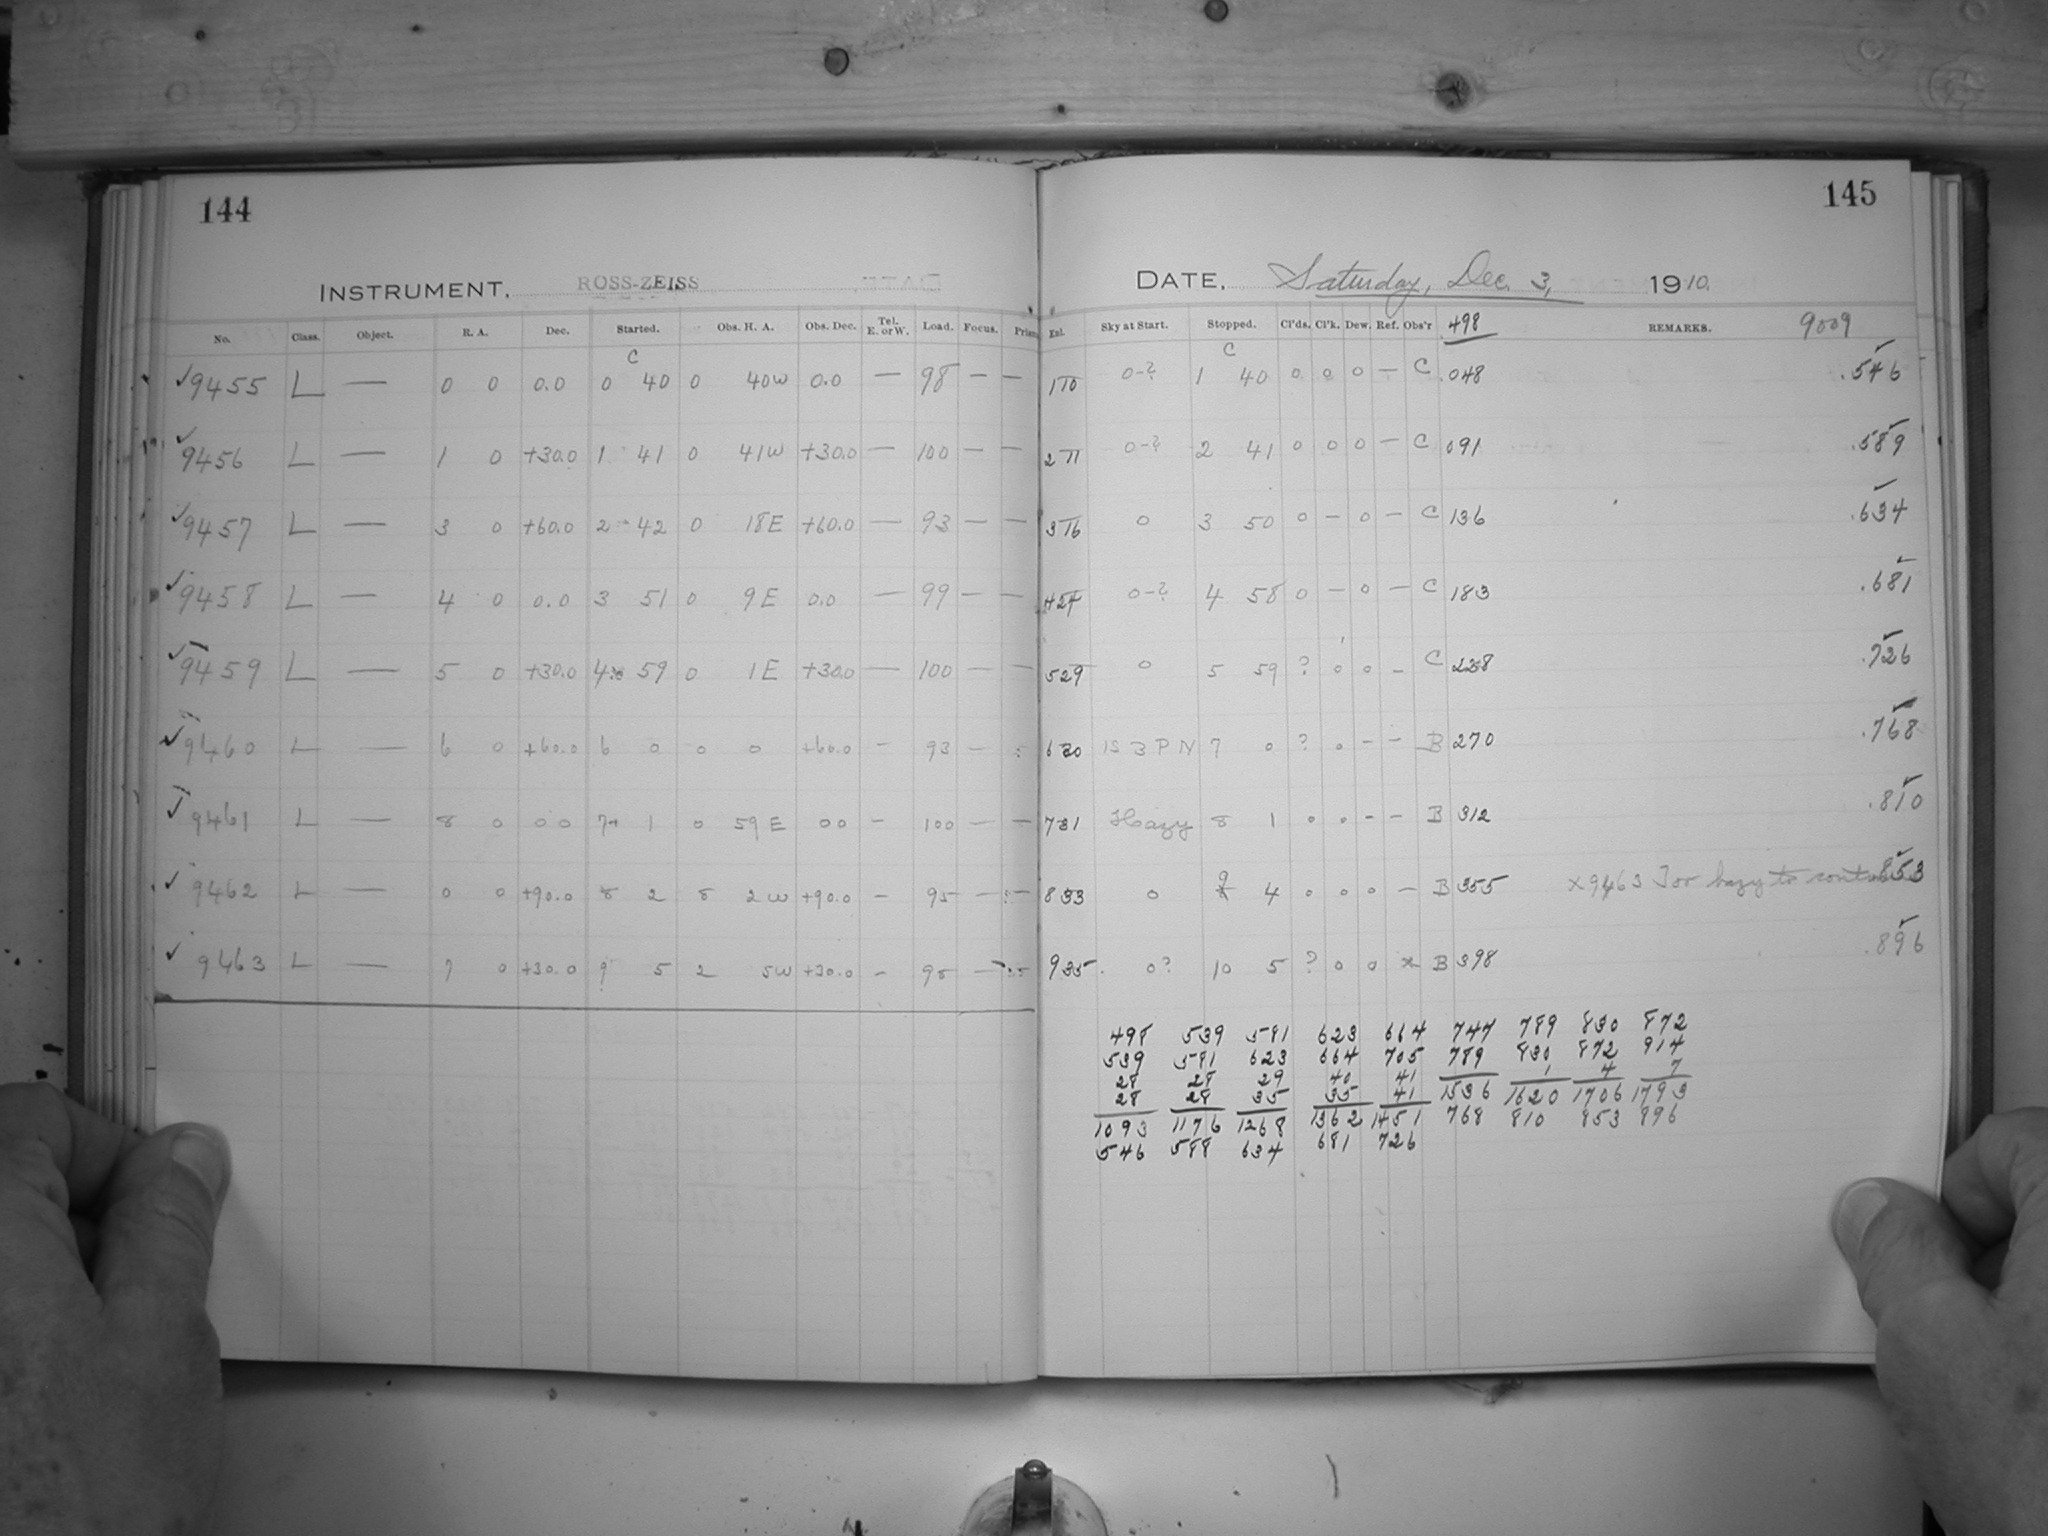 144
145
INSTRUMENT, ROSS-ZEISS
DATE, Saturday, Dec. 3, 1910.
No. Class. Object. R. A. Dec. Started. Obs. H. A. Obs. Dec. Tel. E. or W. Load. Focus. Prism Exl. Sky at Start. Stopped. Cl'ds. Cl'k. Dew. Ref. Obs'r 498 REMARKS. 9009
C C
✓9455 L — 0 0 0.0 0 40 0 40W 0.0 — 98 — — 110 0-? 1 40 0 0 0 — C .048 .546
✓9456 L — 1 0 +30.0 1 41 0 41W +30.0 — 100 — — 211 0-? 2 41 0 0 0 — C 091 .589
✓9457 L — 3 0 +60.0 2 42 0 18E +60.0 — 93 — — 316 0 3 50 0 — 0 — C 136 .634
✓9458 L — 4 0 0.0 3 51 0 9E 0.0 — 99 — — 424 0-? 4 58 0 — 0 — C 183 .681
✓9459 L — 5 0 +30.0 4 59 0 1E +30.0 — 100 — — 529 0 5 59 ? 0 0 - C 228 .726
✓9460 L — 6 0 +60.0 6 0 0 0 +60.0 - 93 — 630 IS 3 P N 7 0 ? 0 - - B 270 .768
✓9461 L — 8 0 0 0 7 1 0 59E 00 - 100 — — 731 Hazy 8 1 0 0 - - B 312 .810
✓9462 L — 0 0 +90.0 8 2 8 2W +90.0 - 95 — — 833 0 9 4 0 0 0 — B 355 x9463 Too hazy to continue 853
✓9463 L — 7 0 +30.0 9 5 2 5W +30.0 - 98 — 935 0? 10 5 ? 0 0 x B 398 .896
498 539 581 623 664 747 789 830 872
539 581 623 664 705 789 830 872 914
28 28 29 40 41 1 4 7
28 28 35 35 41 1536 1620 1706 1793
1093 1176 1268 1362 1451 768 810 853 896
546 588 634 681 726